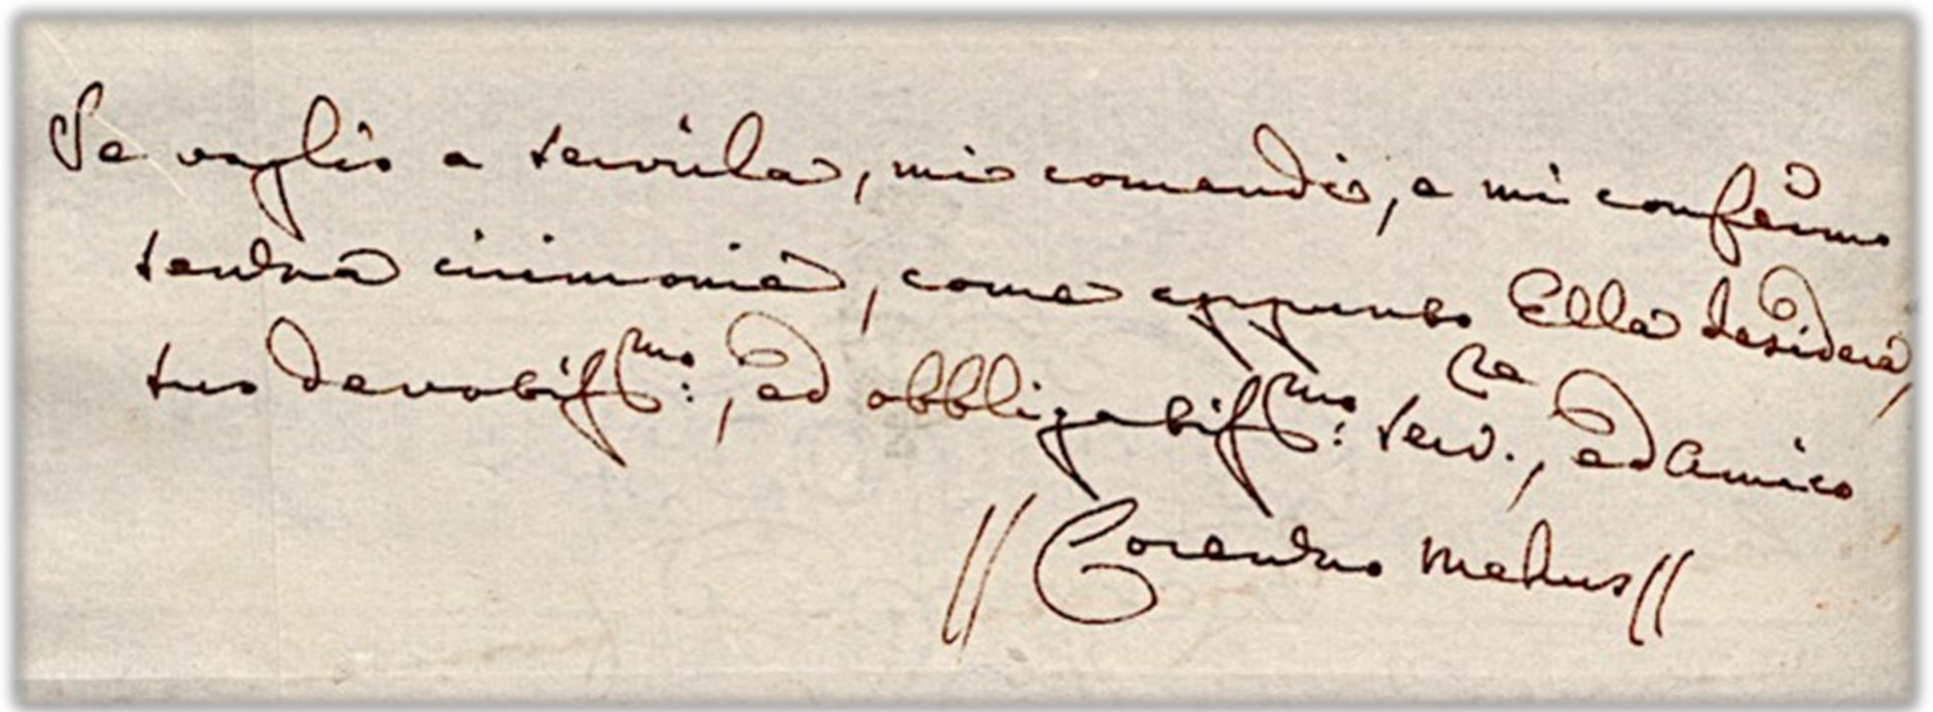 Se vaglio a servirla, mi comandi, e mi confermo
senza cirimonie, come appunto Ella desidera,
suo devotiss.mo:, ed obbligatiss.mo: serv.re, ed Amico
// Lorenzo Mehus //